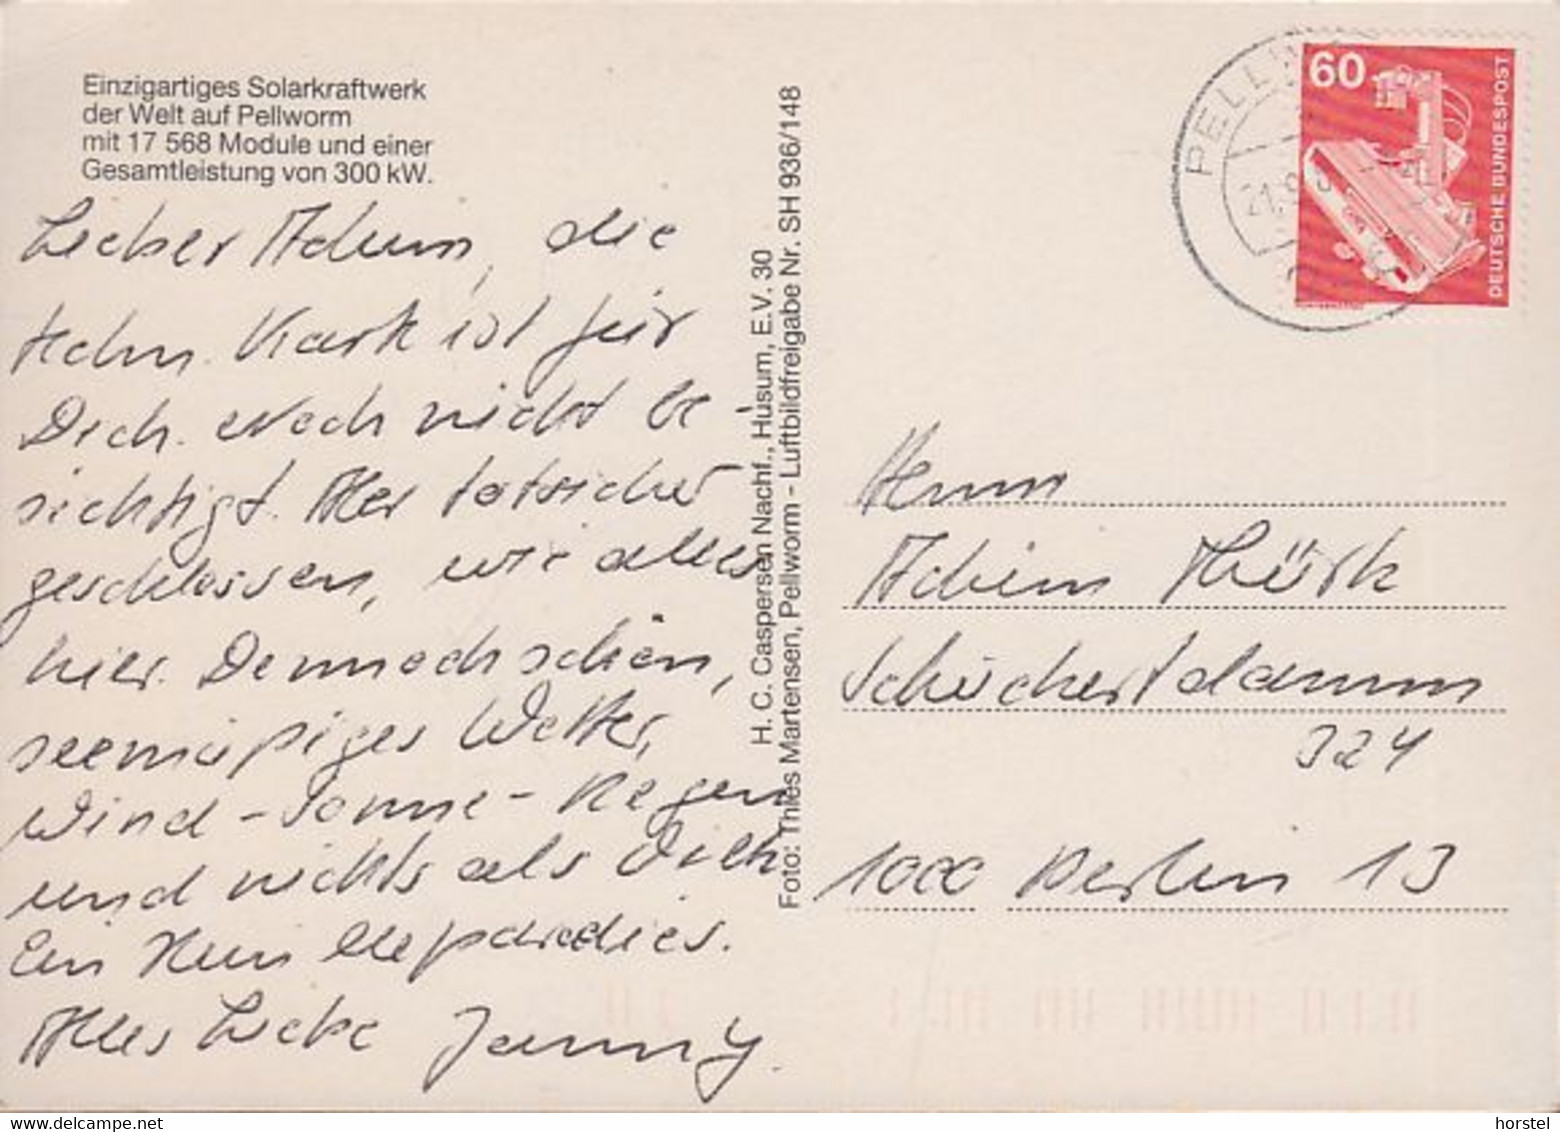 Einzigartiges Solarkraftwerk
der Welt auf Pellworm
mit 17 568 Module und einer
Gesamtleistung von 300 kW.
Lieber Achim, die
Karte ist für
Dich. Noch nicht be-
sichtigt. Aber
geschlossen, wie alles
hier. Dennoch schön,
seemäßiges Wetter,
Wind - Sonne - Regen
und nichts als Deich
Ein
Alles Liebe Jenny.
H. C. Caspersen Nachf., Husum, E.V. 30
Foto: Thies Martensen, Pellworm - Luftbildfreigabe Nr. SH 936/148
60
DEUTSCHE BUNDESPOST
Herrn
Achim
324
1000 Berlin 13
horstel